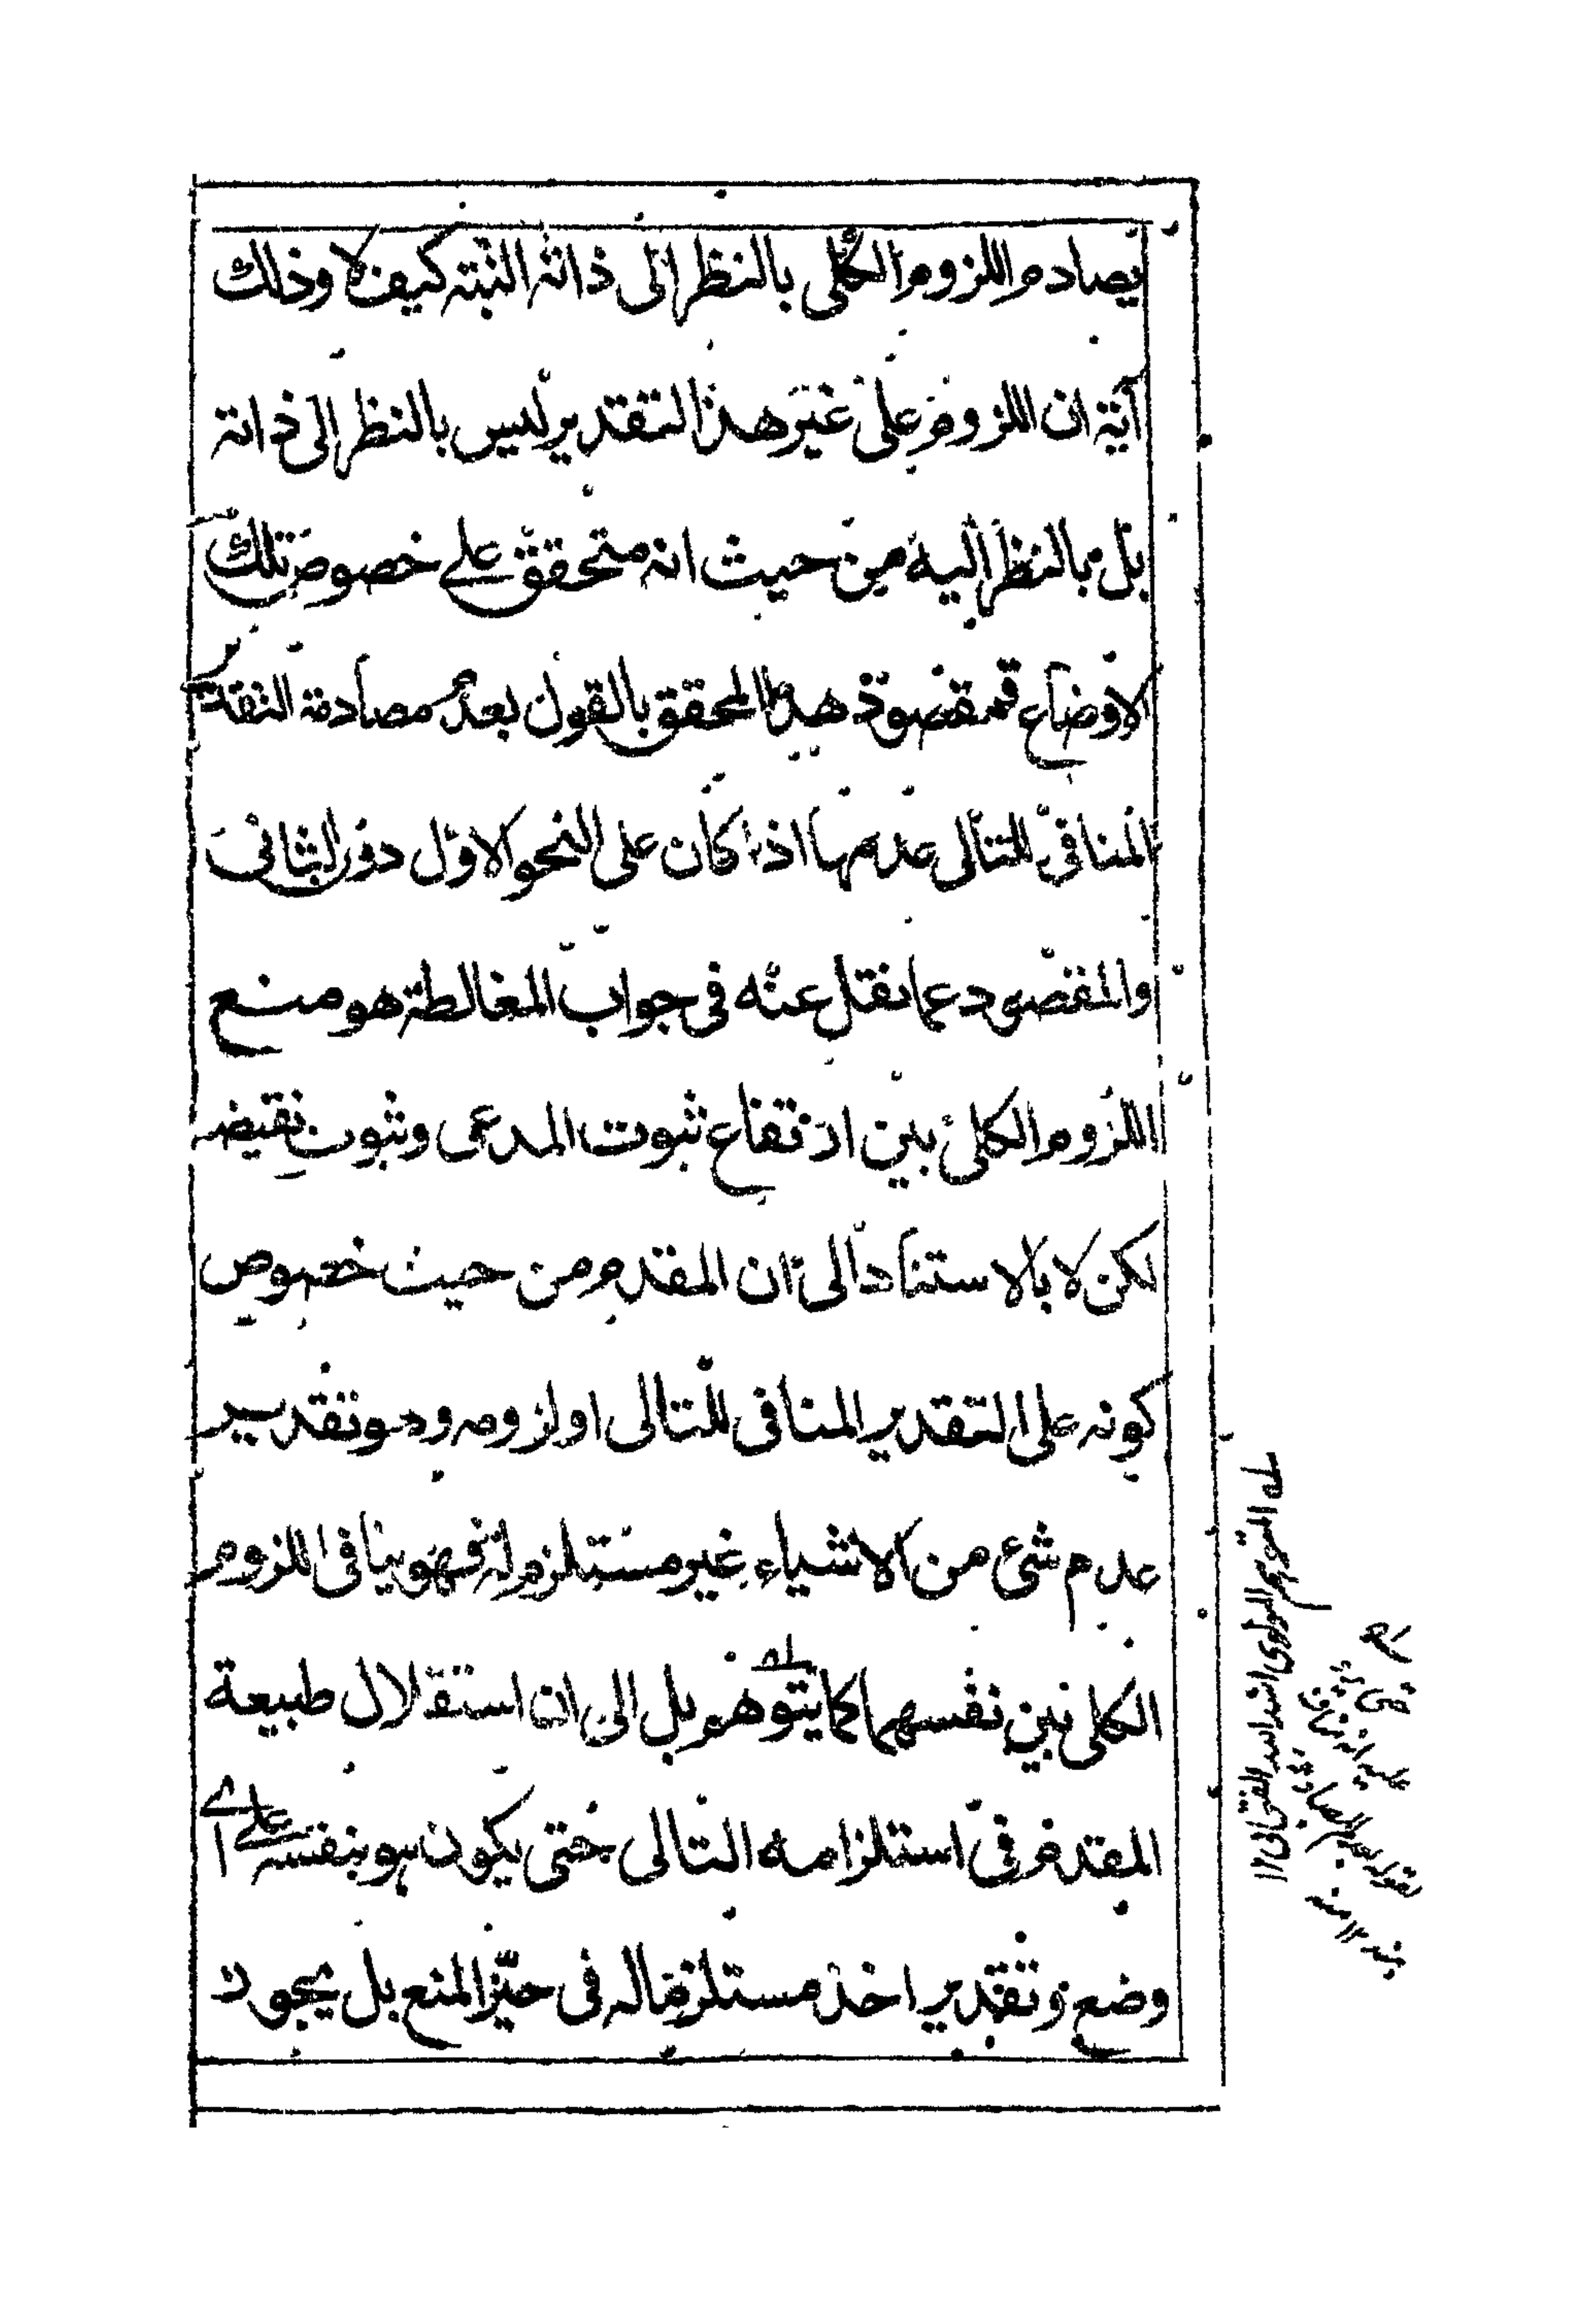 يصادم اللزوم الكلى بالنظر الى ذاته البتة كيف لا وذلك
آية ان اللزوم على غير هذا التقدير ليس بالنظر الى ذاته
بل بالنظر اليه من حيث انه متحقق على خصوص تلك
الاوضاع فمقصود هذا المحقق بالقول بعدم مصادمة التقدير
المنافى للتالى عدمها اذا كان على النحو الاول دون الثانى
والمقصود عما نقل عنه فى جواب المغالطة هو منع
اللزوم الكلى بين ارتفاع ثبوت المدعى وثبوت نقيضه
لكن لا بالاستناد الى ان المقدم من حيث خصوص
كونه على التقدير المنافى للتالى او لزومه وهو تقدير
عدم شئ من الاشياء غير مستلزم له فهو ينافى اللزوم
الكلى بين نفسهما كما يتوهم بل الى ان استقلال طبيعة
المقدم فى استلزامه التالى حتى يكون هو بنفسه على اى
وضع وتقدير اخذ مستلزما له فى حيز المنع بل يجوز
له المتوهم المولوى اسد الله الفتحانى ١٢